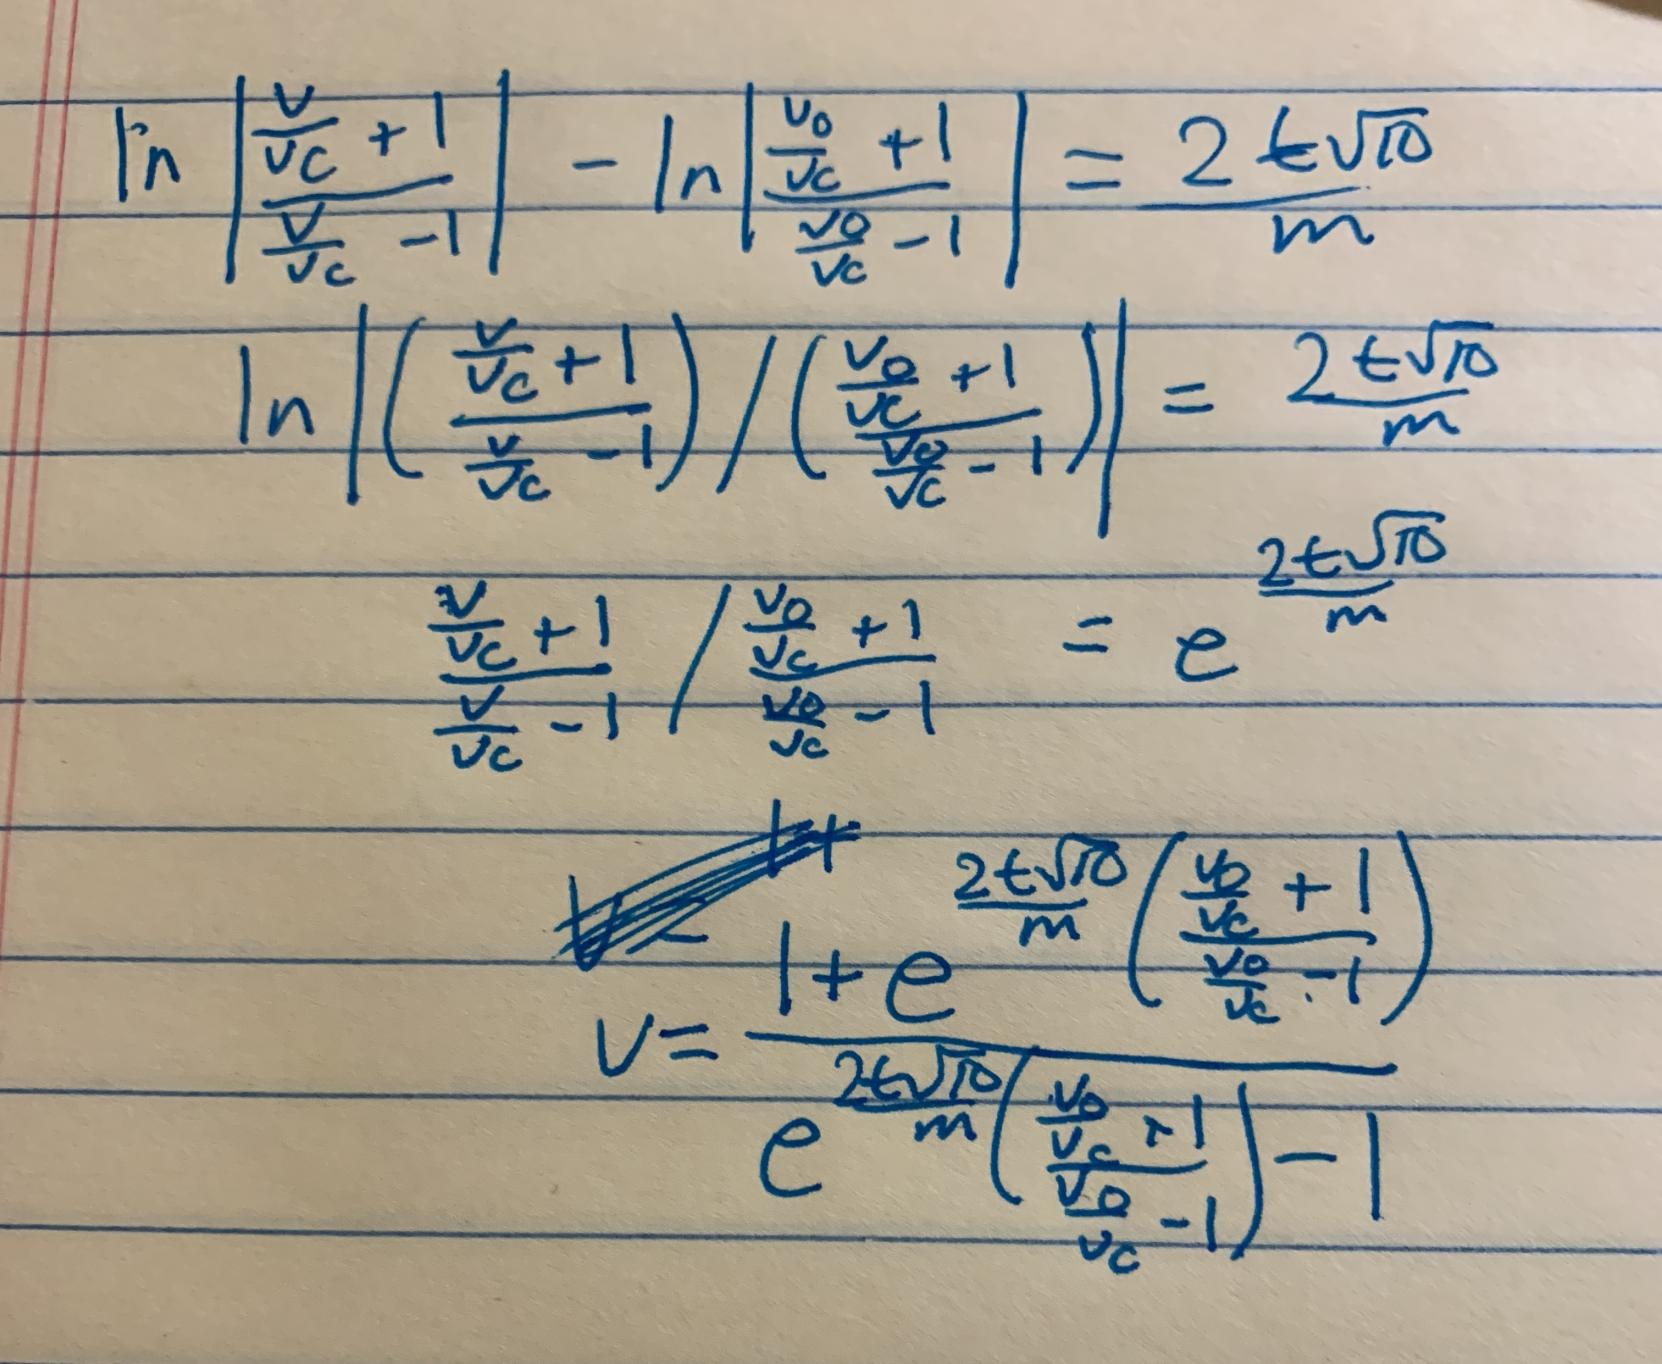 ln |(v/vc + 1)/(v/vc - 1)| - ln |(v0/vc + 1)/(v0/vc - 1)| = 2t√10/m
ln |((v/vc + 1)/(v/vc - 1)) / ((v0/vc + 1)/(v0/vc - 1))| = 2t√10/m
(v/vc + 1)/(v/vc - 1) / (v0/vc + 1)/(v0/vc - 1) = e^(2t√10/m)
v = (1 + e^(2t√10/m) ((v0/vc + 1)/(v0/vc - 1)))/(e^(2t√10/m) ((v0/vc + 1)/(v0/vc - 1)) - 1)